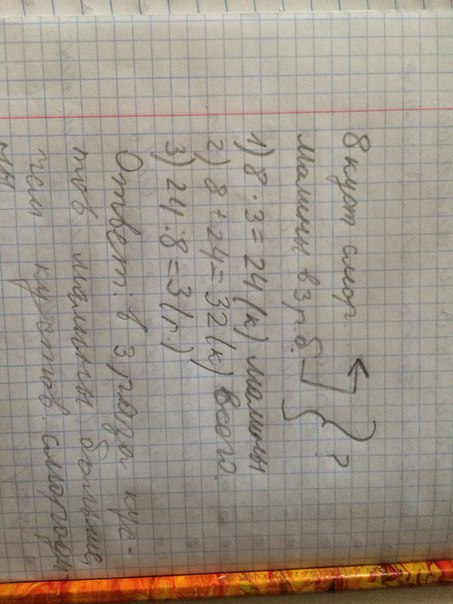 8 куст смор
малины в 3 р. б. } ?
1) 8 · 3 = 24 (к) малины
2) 8 + 24 = 32 (к) всего.
3) 24 : 8 = 3 (р.)
Ответ: в 3 раза кус-
тов малины больше,
чем кустов смороди